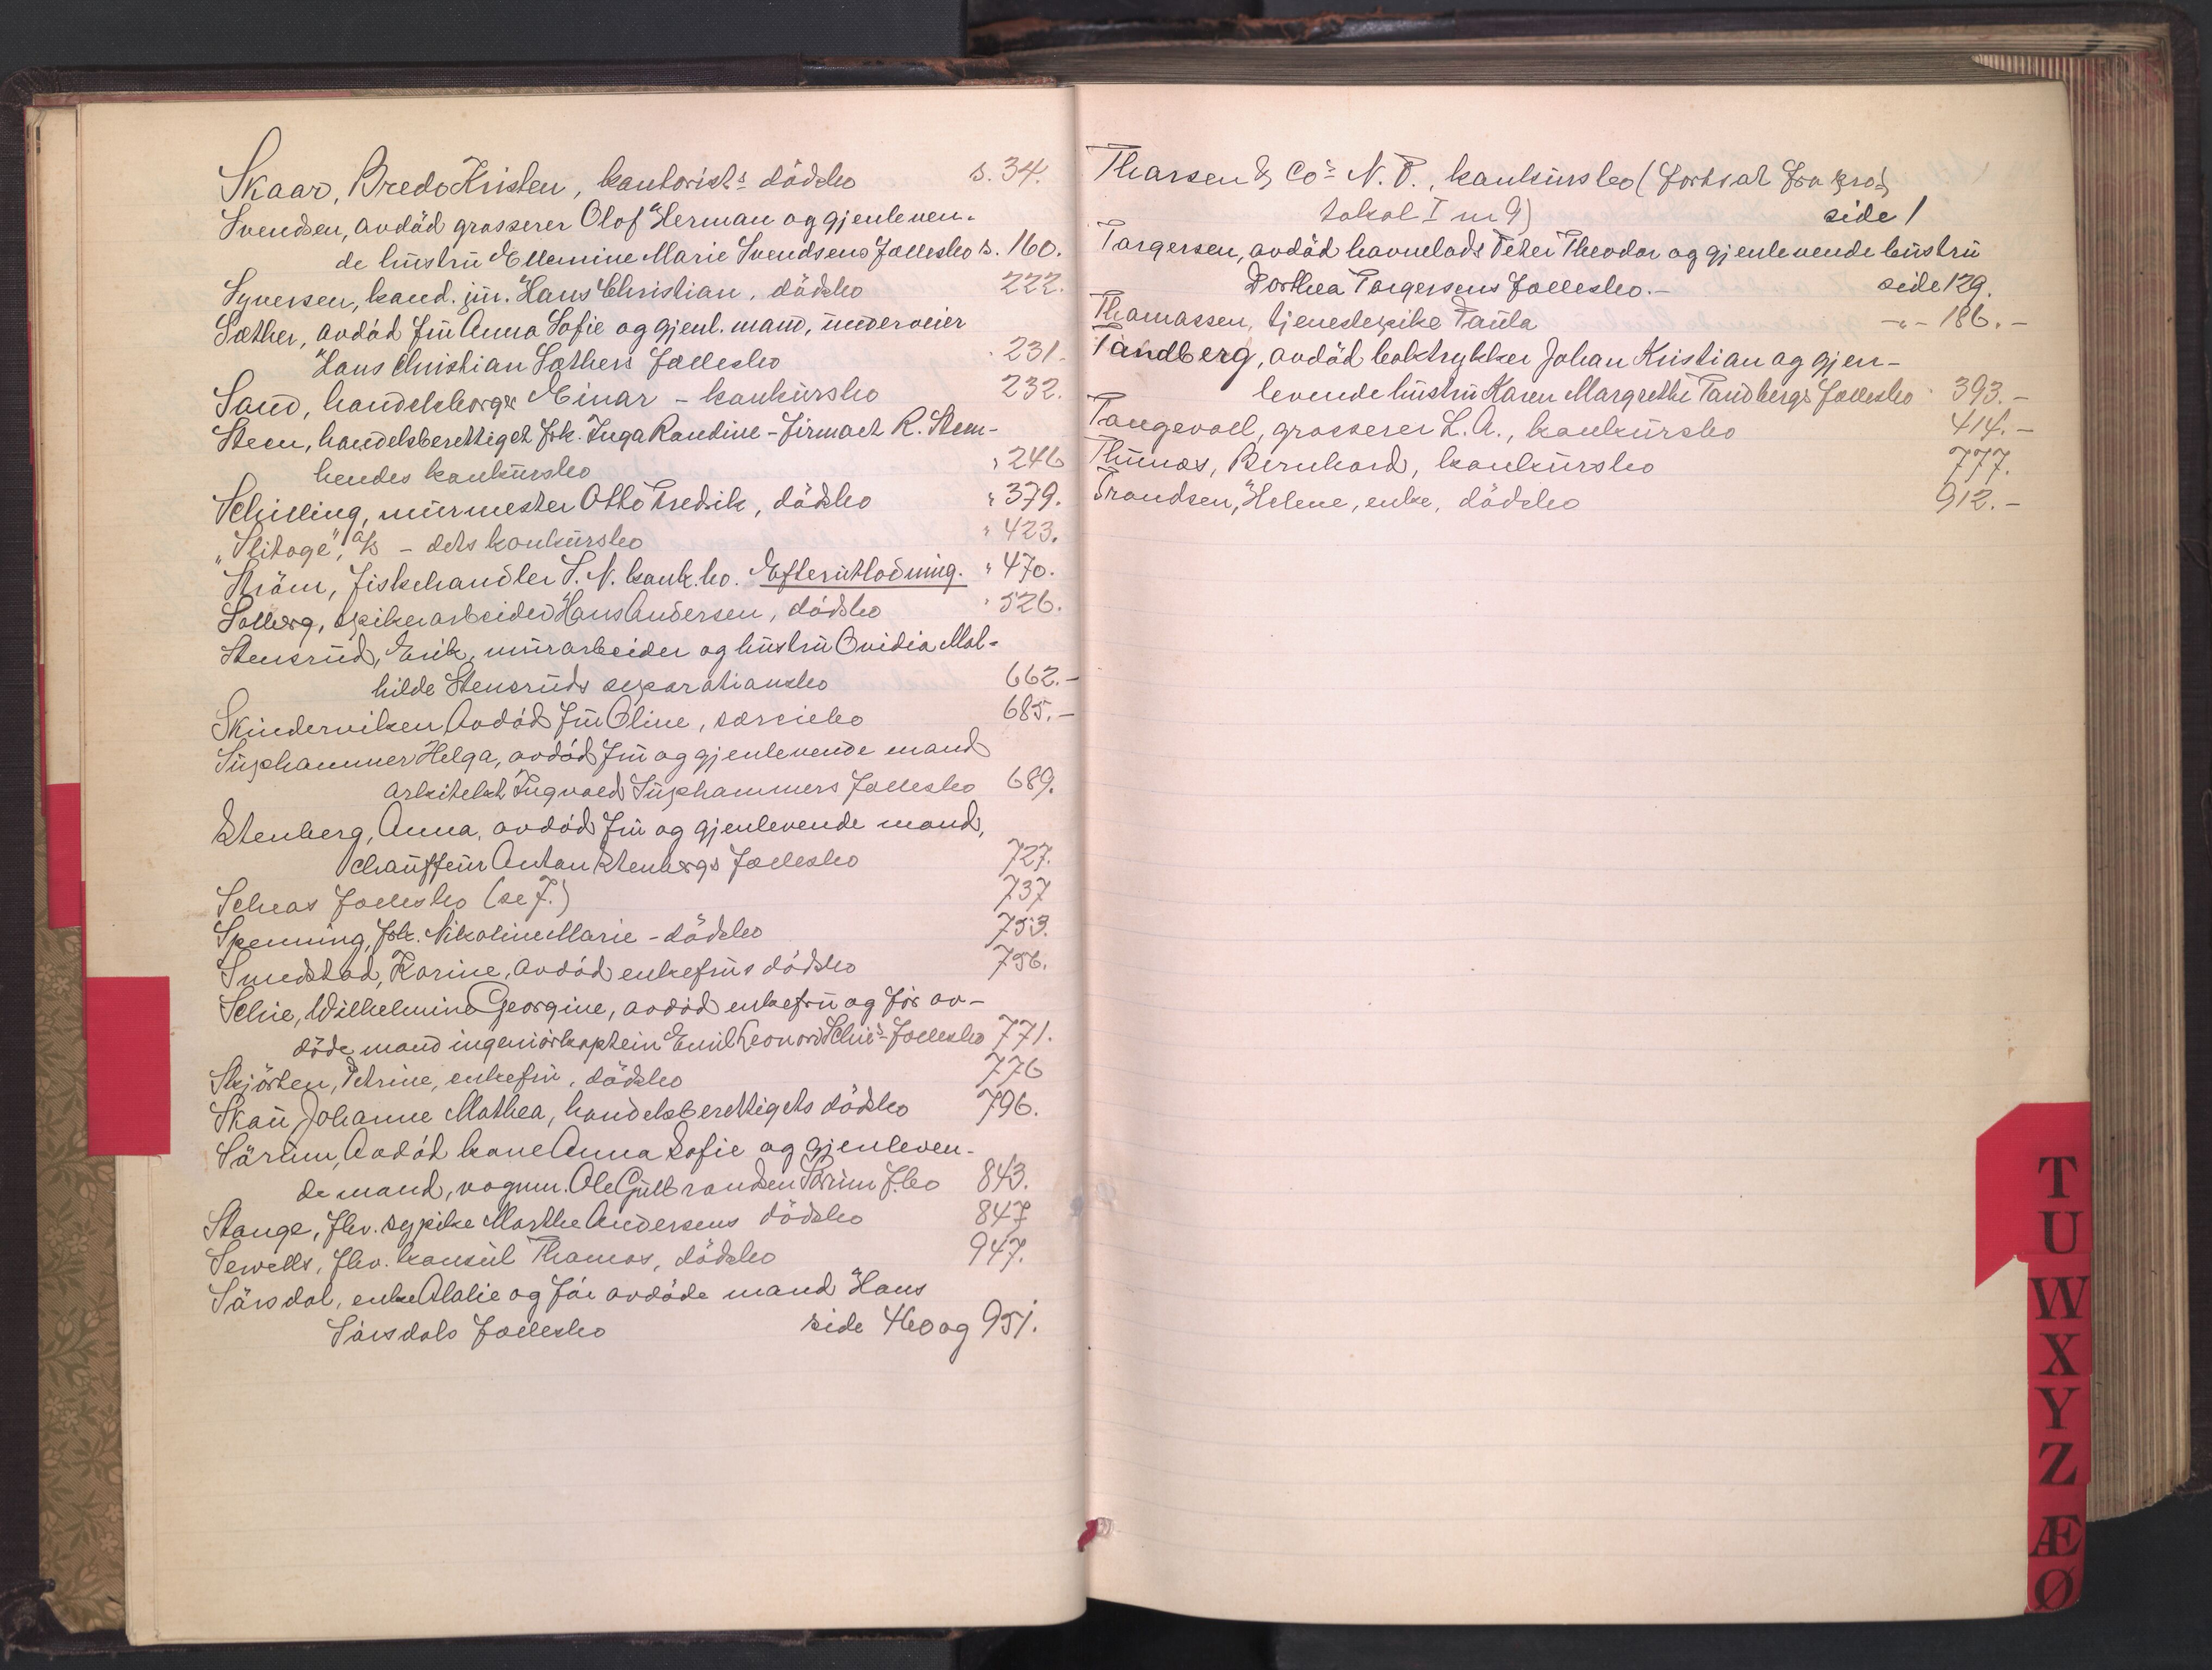 Skaar, Bredo Kristen, kontorists dödsbo s. 34.
Svendsen, avdöd grosserer Olof Herman og gjenleven-
de hustru Ellemine Marie Svendsens fællesbo s. 160.
Syversen, kand. jur. Hans Christian, dödsbo 222.
Sæther, avdöd fru Anna Sofie og gjenl. mand, underveier
Hans Christian Sæthers fællesbo 231.
Sand, handelsborger Einar - konkursbo 232.
Steen, handelsberettiget frk. Inga Randine - firmaet R. Steen -
hendes konkursbo " 246
Schilling, murmester Otto Fredrik, dödsbo " 379.
"Slitage", A/S - dets konkursbo " 423.
Ström, fiskehandler S. N. konk.bo. Efterutlodning. " 470.
Solberg, spikerarbeider Hans Andersen, dödsbo " 526.
Stensrud, Erik, murarbeider og hustru Ovidia Mat-
hilde Stensruds separationsbo 662.-
Skinderviken Avdöd fru Oline, særeiebo 685.-
Suphammer Helga, avdöd fru og gjenlevende mand
arkitekt Ingvald Suphammers fællesbo 689.
Stenberg, Anna, avdöd fru og gjenlevende mand,
chauffeur Anton Stenbergs fællesbo 727.
Scheas fællesbo (se F.) 737
Spenning, frk. Nikoline Marie - dödsbo 753.
Smedstad, Karine, avdöd enkefrus dödsbo 756.
Schie, Wilhelmine Georgine, avdöd enkefru og för av-
döde mand ingeniörkaptein Emil Leonard Schie's fællesbo 771.
Skjörten, Petrine, enkefru, dödsbo 776
Skau Johanne Mathea, handelsberettigets dödsbo 796.
Sörum, Avdöd kone Anna Sofie og gjenleven-
de mand, vognm. Ole Gulbrandsen Sörum f.bo 843.
Stange, fhv. sypike Marthe Andersens dödsbo 847
Sewells, fhv. konsul Thomas, dödsbo 947.
Sörsdal, enke Alalie og för avdöde mand Hans
Sörsdals fællesbo side 460 og 951.
Tharsen & Co's N. P., konkursbo (fortsat fra pro-
tokol I nr 9) side 1
Torgersen, avdöd havnelods Peter Theodor og gjenlevende hustru
Dorthea Torgersens fællesbo.- side 129.
Thomassen, tjenestepike Paula -"- 186.-
Tandberg, avdöd boktrykker Johan Kristian og gjen-
levende hustru Karen Margrethe Tandbergs fællesbo 393.-
Tangevall, grosserer L. A., konkursbo 414.-
Thunæs, Bernhard, konkursbo 777.
Trondsen, Helene, enke, dödsbo 912.-
T
U
W
X
Y
Z
Æ
Ø